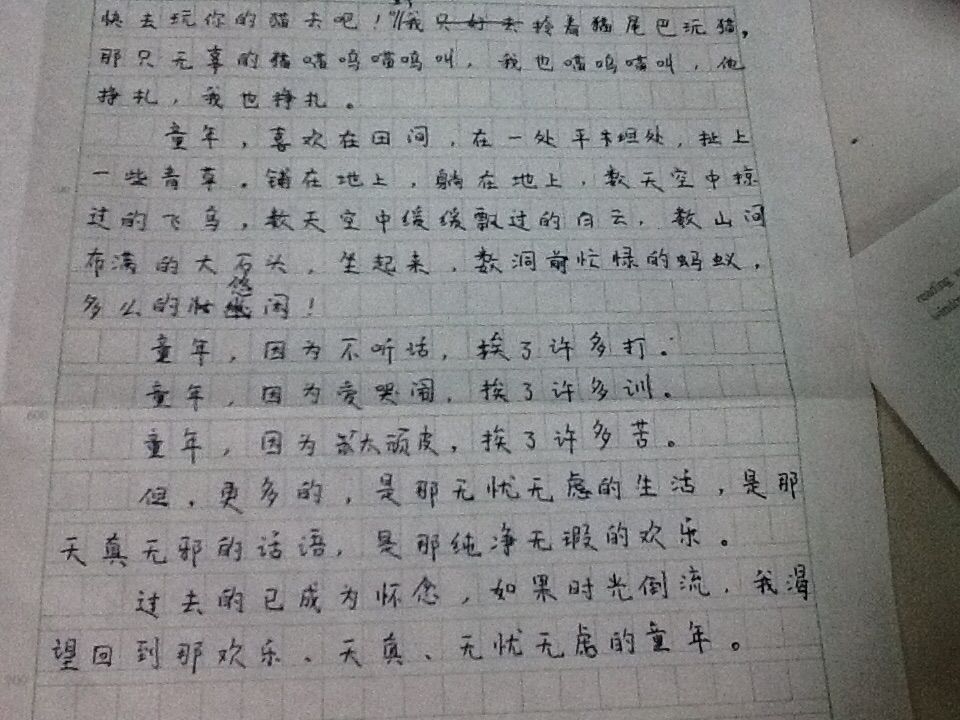 快去玩你的猫去吧！"我拎着猫尾巴玩猫，
那只无辜的猫喵呜喵呜叫，我也喵呜喵叫，他
挣扎，我也挣扎。
童年，喜欢在田间，在一处平坦处，扯上
一些青草。铺在地上，躺在地上，数天空中掠
过的飞鸟，数天空中缓缓飘过的白云，数山间
布满的大石头，坐起来，数洞前忙碌的蚂蚁，
多么的悠闲！
童年，因为不听话，挨了许多打。
童年，因为爱哭闹，挨了许多训。
童年，因为太顽皮，挨了许多苦。
但，更多的，是那无忧无虑的生活，是那
天真无邪的话语，是那纯净无瑕的欢乐。
过去的已成为怀念，如果时光倒流，我渴
望回到那欢乐、天真、无忧无虑的童年。
600
700
reading